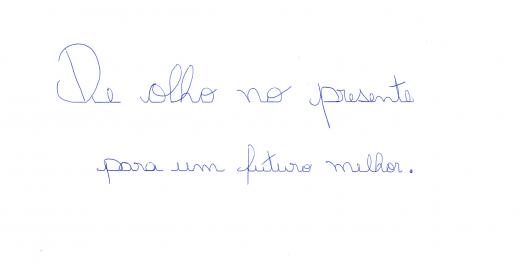 De olho no presente
para um futuro melhor.